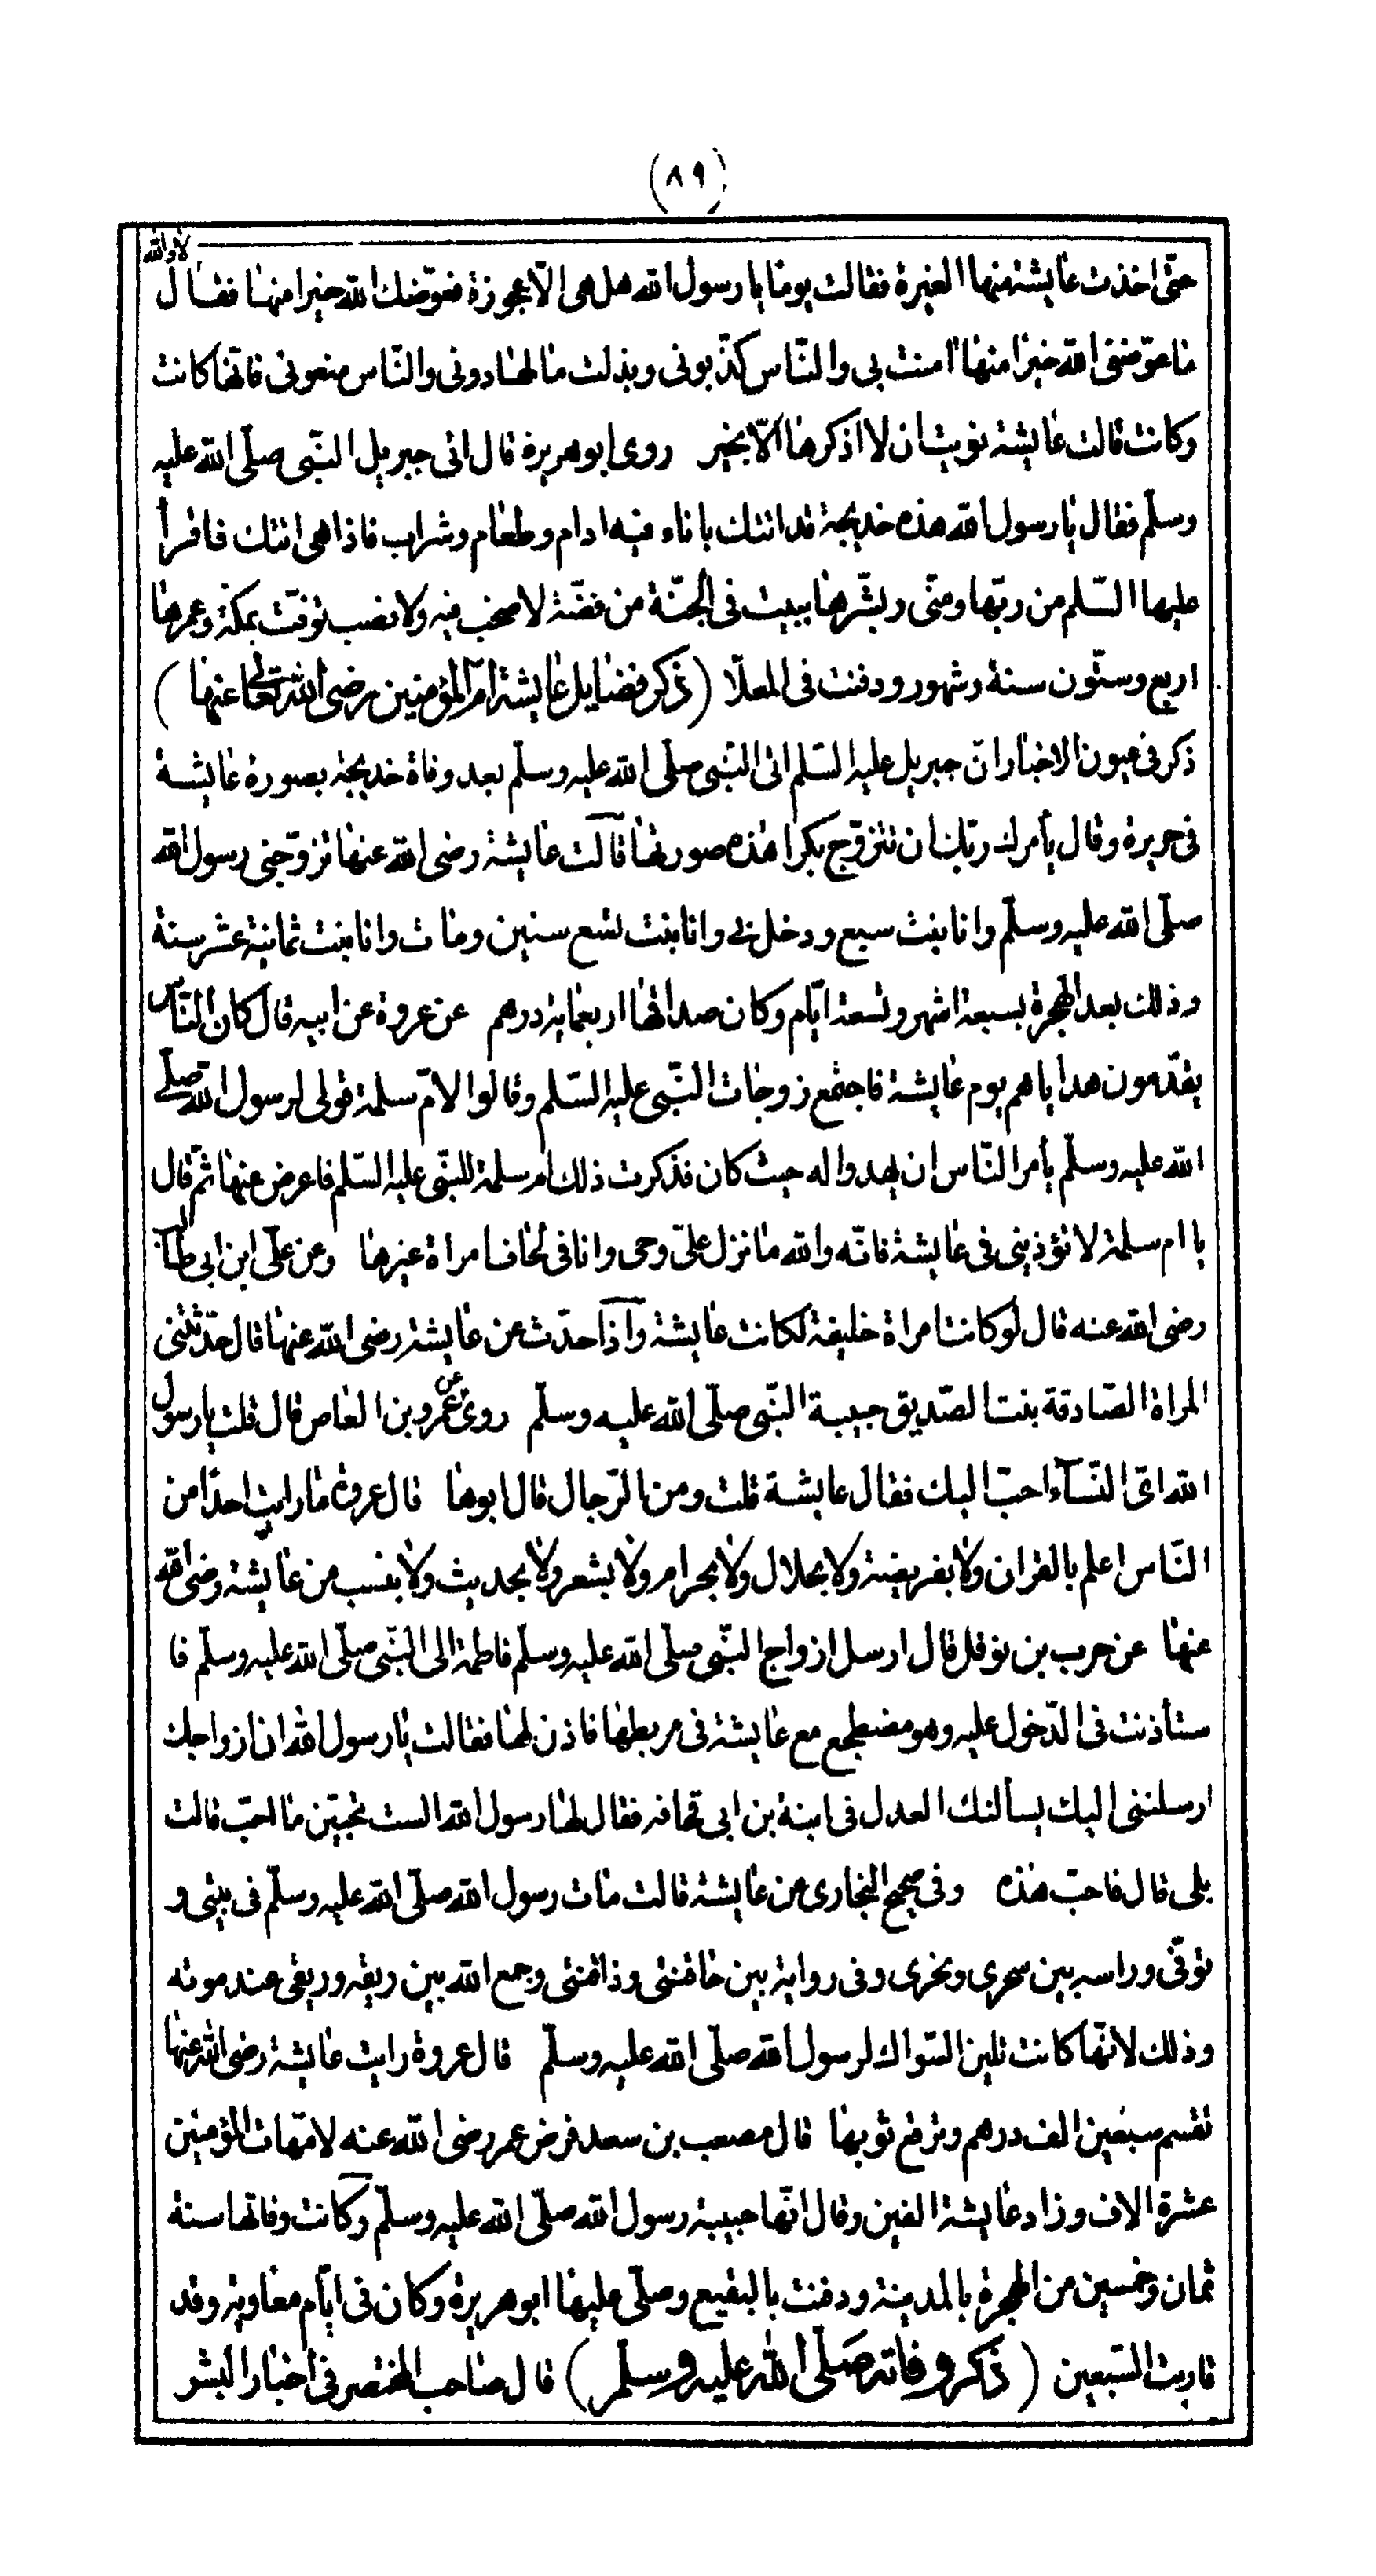 (٨٩)
لا والله
حتّى اخذت عايشة منها الغيرة فقالت يوما يا رسول الله هل هى الّا عجوزة فعوّضك الله خيرا منها فقال
ما عوّضنى الله خيرا منها امنت بى والنّاس كذّبونى وبذلت مالها دونى والنّاس منعونى فانّها كانت
وكانت قالت عايشة نويت ان لا اذكرها الّا بخير روى ابو هريرة قال اتى جبريل النّبى صلّى الله عليه
وسلّم فقال يا رسول الله هذه خديجة قد اتتك باناء فيه ادام وطعام وشراب فاذا هى اتتك فاقرأ
عليها السّلم من ربّها ومنّى وبشّرها ببيت فى الجنّة من فضّة لا صخب فيه ولا نصب توفّت بمكّة وعمرها
اربع وستّون سنة وشهور ودفنت فى المعلّا (ذكر فضايل عايشة امّ المؤمنين رضى الله تعالى عنها)
ذكر فى عيون الاخبار انّ جبريل عليه السّلم اتى النّبى صلّى الله عليه وسلّم بعد وفاة خديجة بصورة عايشة
فى حريرة وقال يأمرك ربّك ان تتزوّج بكرا هذه صورتها قالت عايشة رضى الله عنها تزوّجنى رسول الله
صلّى الله عليه وسلّم وانا بنت سبع ودخل بى وانا بنت تسع سنين ومات وانا بنت ثمانية عشر سنة
وذلك بعد الهجرة بسبعة اشهر وتسعة ايّام وكان صداقها اربعماية درهم عن عروة عن ابيه قال كان النّاس
يقدّمون هداياهم يوم عايشة فاجتمع زوجات النّبى عليه السّلم وقالوا لامّ سلمة قولى لرسول الله صلى
الله عليه وسلّم يأمر النّاس ان يهدوا له حيث كان فذكرت ذلك ام سلمة للنّبى عليه السّلم فاعرض عنها ثمّ قال
يا ام سلمة لا تؤذينى فى عايشة فانّه والله ما نزل علىّ وحى وانا فى لحاف امراة غيرها وعن علىّ ابن ابى طالب
رضى الله عنه قال لو كانت امراة خليفة لكانت عايشة واذا حدّث عن عايشة رضى الله عنها قال حدّثتنى
المراة الصّادقة بنت الصّديق حبيبة النّبى صلّى الله عليه وسلّم روى عن عمرو بن العاص قال قلت يا رسول
الله اىّ النّساء احبّ اليك فقال عايشة قلت ومن الرّجال قال ابوها قال عروة ما رايت احدا من
النّاس اعلم بالقران ولا بفريضة ولا بحلال ولا بحرام ولا بشعر ولا بحديث ولا بنسب من عايشة رضى الله
عنها عن حرب بن نوفل قال ارسل ازواج النّبى صلّى الله عليه وسلّم فاطمة الى النّبى صلّى الله عليه وسلّم فا
ستأذنت فى الدّخول عليه وهو مضطجع مع عايشة فى مربطها فاذن لها فقالت يا رسول الله ان ازواجك
ارسلننى اليك يسألنك العدل فى ابنة بن ابى قحافه فقال لها رسول الله الست تحبّين ما احبّ قالت
بلى قال فاحبّ هذه وفى صحيح البخارى عن عايشة قالت مات رسول الله صلّى الله عليه وسلّم فى بيتى و
توفّى وراسه بين سحرى ونحرى وفى رواية بين حاقنتى وذاقنتى وجمع الله بين ريقه وريقى عند موته
وذلك لانّها كانت تلين السّواك لرسول الله صلّى الله عليه وسلّم قال عروة رايت عايشة رضى الله عنها
تقسم سبعين الف درهم وترقع ثوبها قال مصعب بن سعد فرض عمر رضى الله عنه لامّهات المؤمنين
عشرة الاف وزاد عايشة الفين وقال انّها حبيبة رسول الله صلّى الله عليه وسلّم وكانت وفاتها سنة
ثمان وخمسين من الهجرة بالمدينة ودفنت بالبقيع وصلّى عليها ابو هريرة وكان فى ايّام معاوية وقد
قاربت السّبعين (ذكر وفاته صلّى الله عليه وسلّم) قال صاحب المختصر فى اخبار البشر